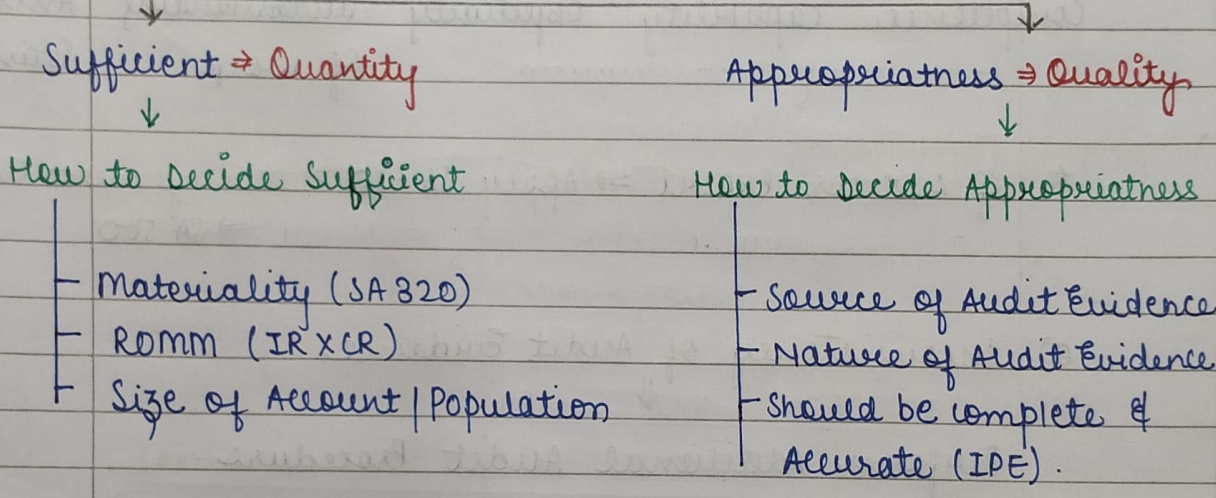 Sufficient ⇒ Quantity
↓
How to Decide Sufficient
Materiality (SA 320)
ROMM (IR X CR)
Size of Account | Population
Appropriatness ⇒ Quality
↓
How to Decide Appropriatness
Source of Audit Evidence
Nature of Audit Evidence
Should be complete &
Accurate (IPE).